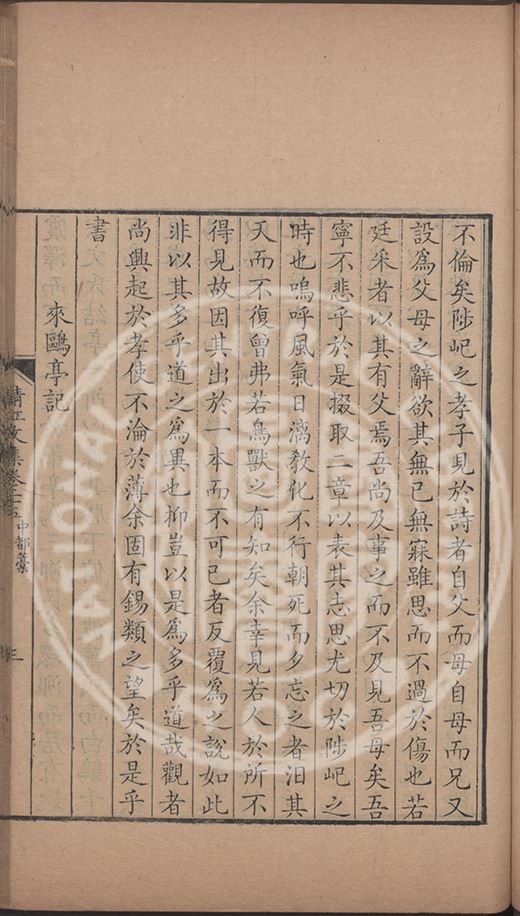 不倫矣陟屺之孝子見於詩者自父而母自母而兄又
設為父母之辭欲其無已無寐雖思而不過於傷也若
廷采者以其有父焉吾尚及事之而不及見吾母矣吾
寧不悲乎於是掇取二章以表其志思尤切於陟屺之
時也嗚呼風氣日漓教化不行朝死而夕忘之者汨其
天而不復曾弗若鳥獸之有知矣余幸見若人於所不
得見故因其出於一本而不可已者反覆為之說如此
非以其多乎道之為異也抑豈以是為多乎道哉觀者
尚興起於孝使不淪於薄余固有錫類之望矣於是乎
書
來鷗亭記
清江文集卷二十五 中都藁
三